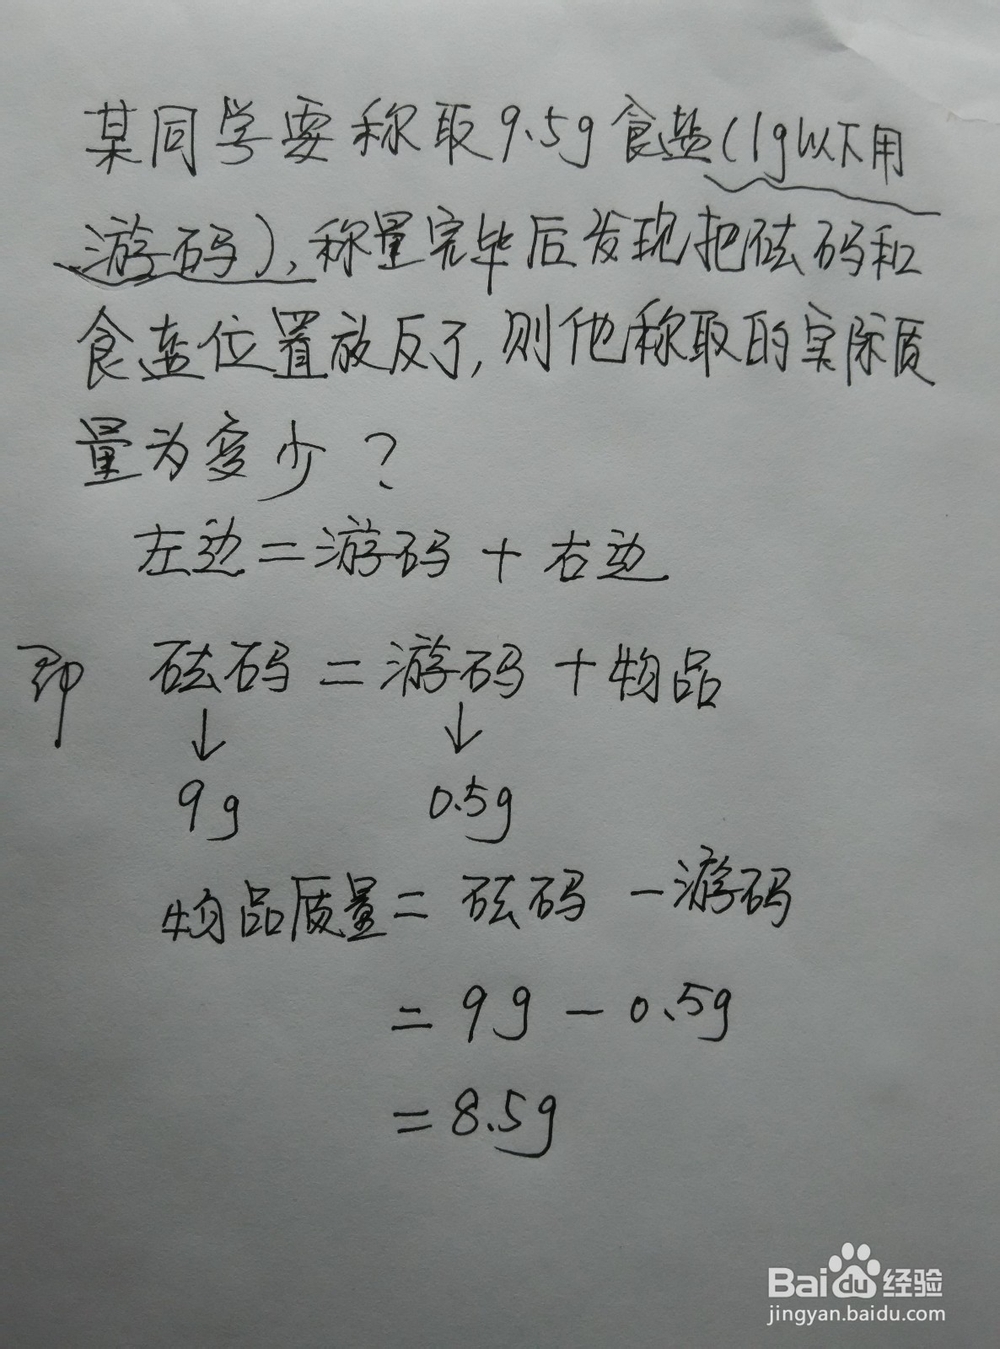 某同学要称取9.5g食盐(1g以下用
游码),称量完毕后发现把砝码和
食盐位置放反了,则他称取的实际质
量为多少?
左边=游码+右边
即 砝码=游码+物品
↓ ↓
9g 0.5g
物品质量=砝码-游码
=9g-0.5g
=8.5g
Baidu经验
jingyan.baidu.com